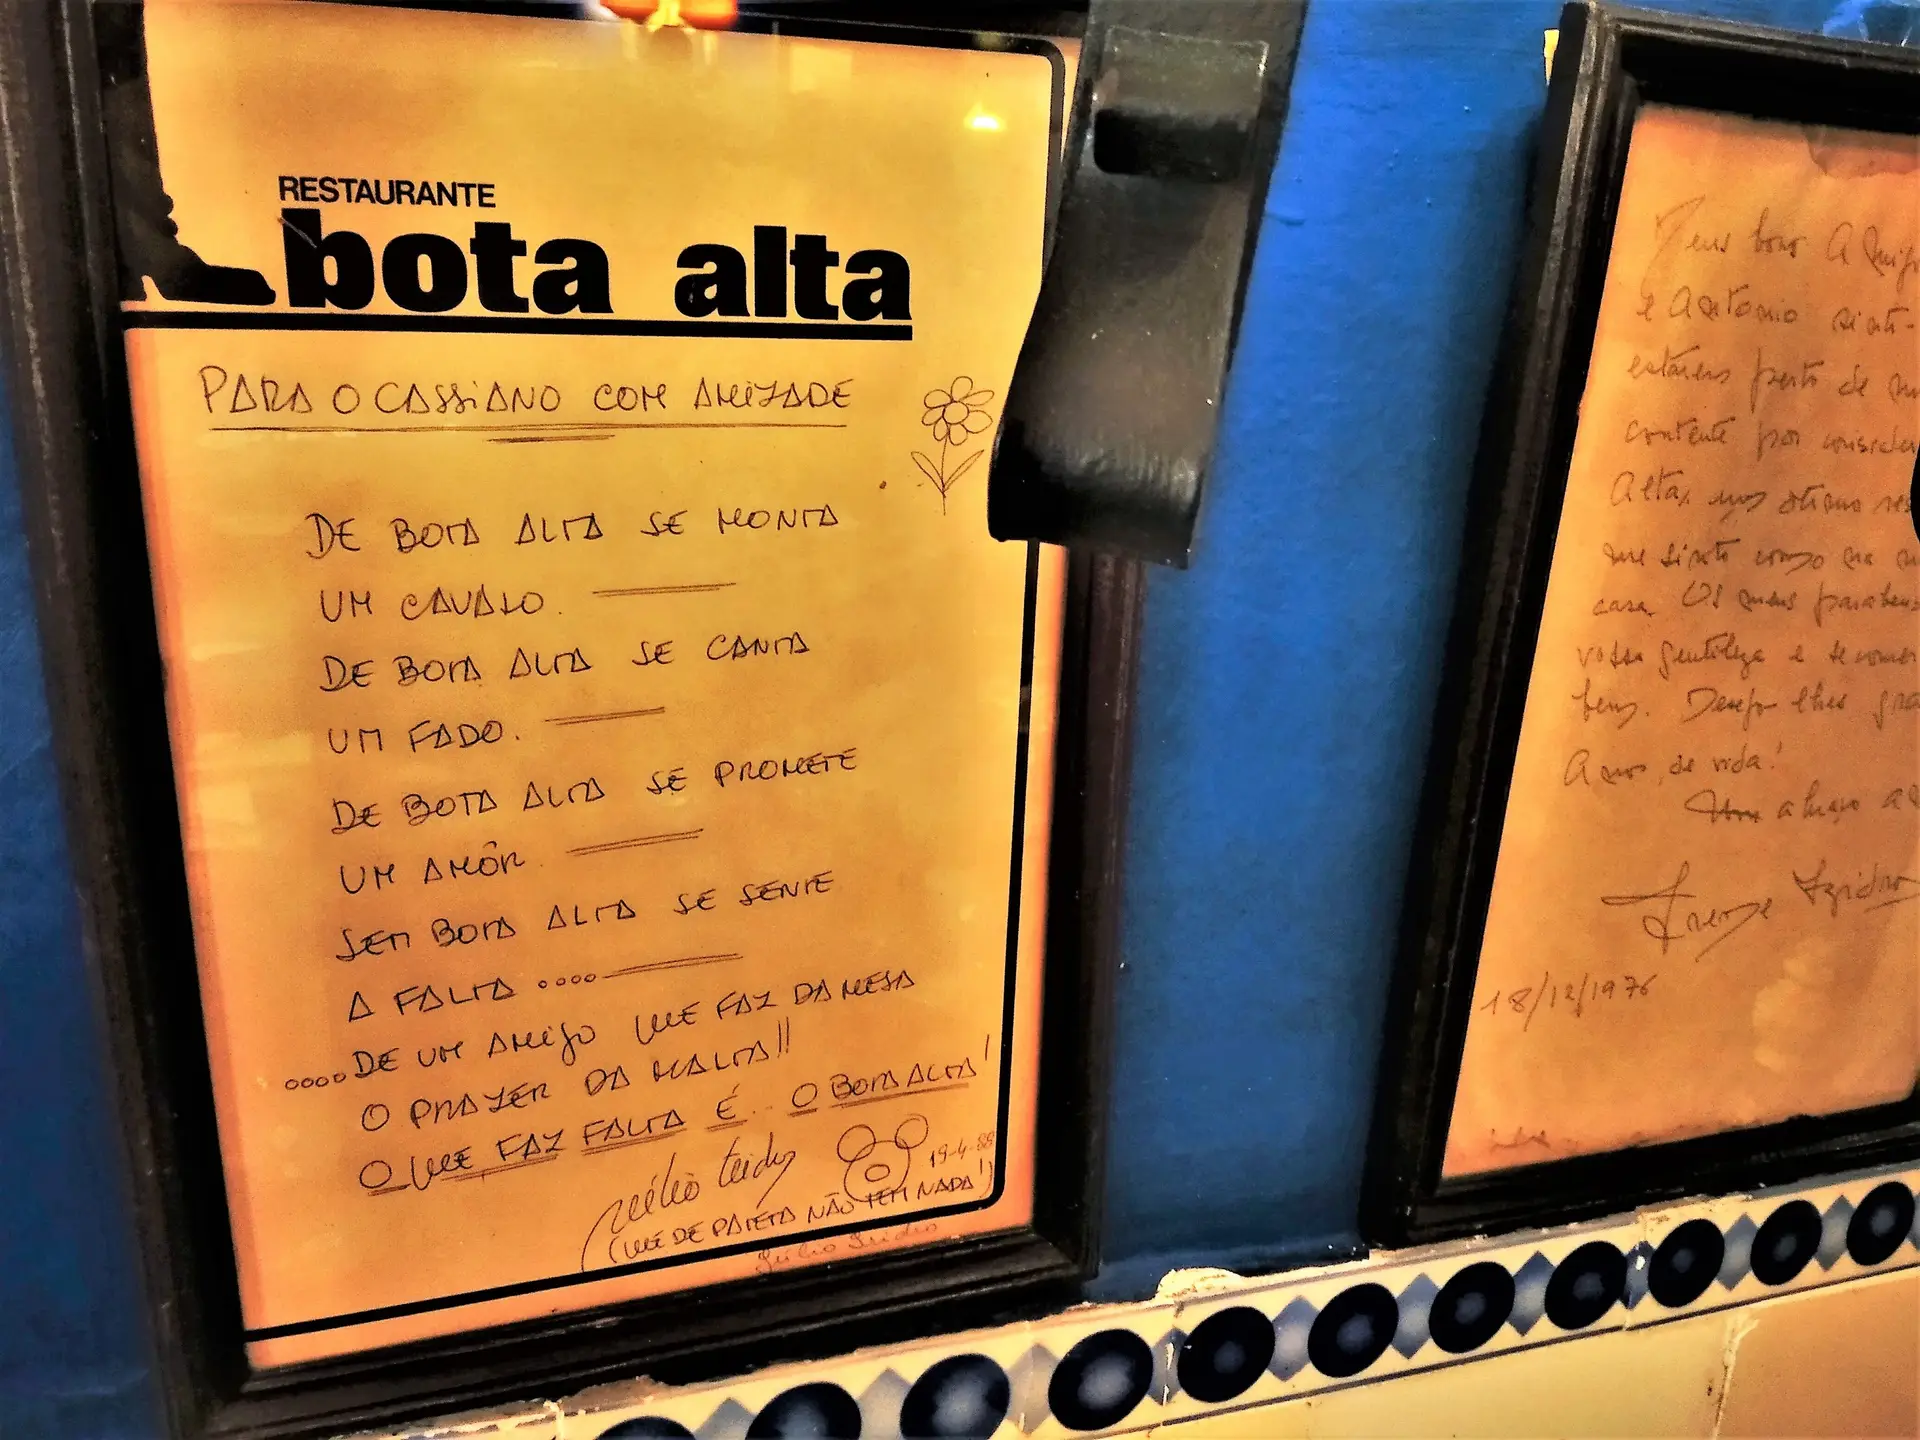 RESTAURANTE
bota alta
PARA O CASSIANO COM AMIZADE
DE BOTA ALTA SE MONTA
UM CAVALO.
DE BOTA ALTA SE CANTA
UM FADO.
DE BOTA ALTA SE PROMETE
UM AMÔR
SEM BOTA ALTA SE SENTE
A FALTA ....
....DE UM AMIGO QUE FAZ DA MESA
O PRAZER DA MALTA!!
O QUE FAZ FALTA É.. O BOTA ALTA!
19-4-88
(QUE DE PATÊTA NÃO TEM NADA!)
Júlio Isidro
Meus bons
e Antonio sinto-
estarem perto de
contente por
Alta,
me sinto como na
casa. Os meus parabens
vossa gentileza e
bem. Desejo lhes
Anos, de vida!
Um abraço
18/12/1976